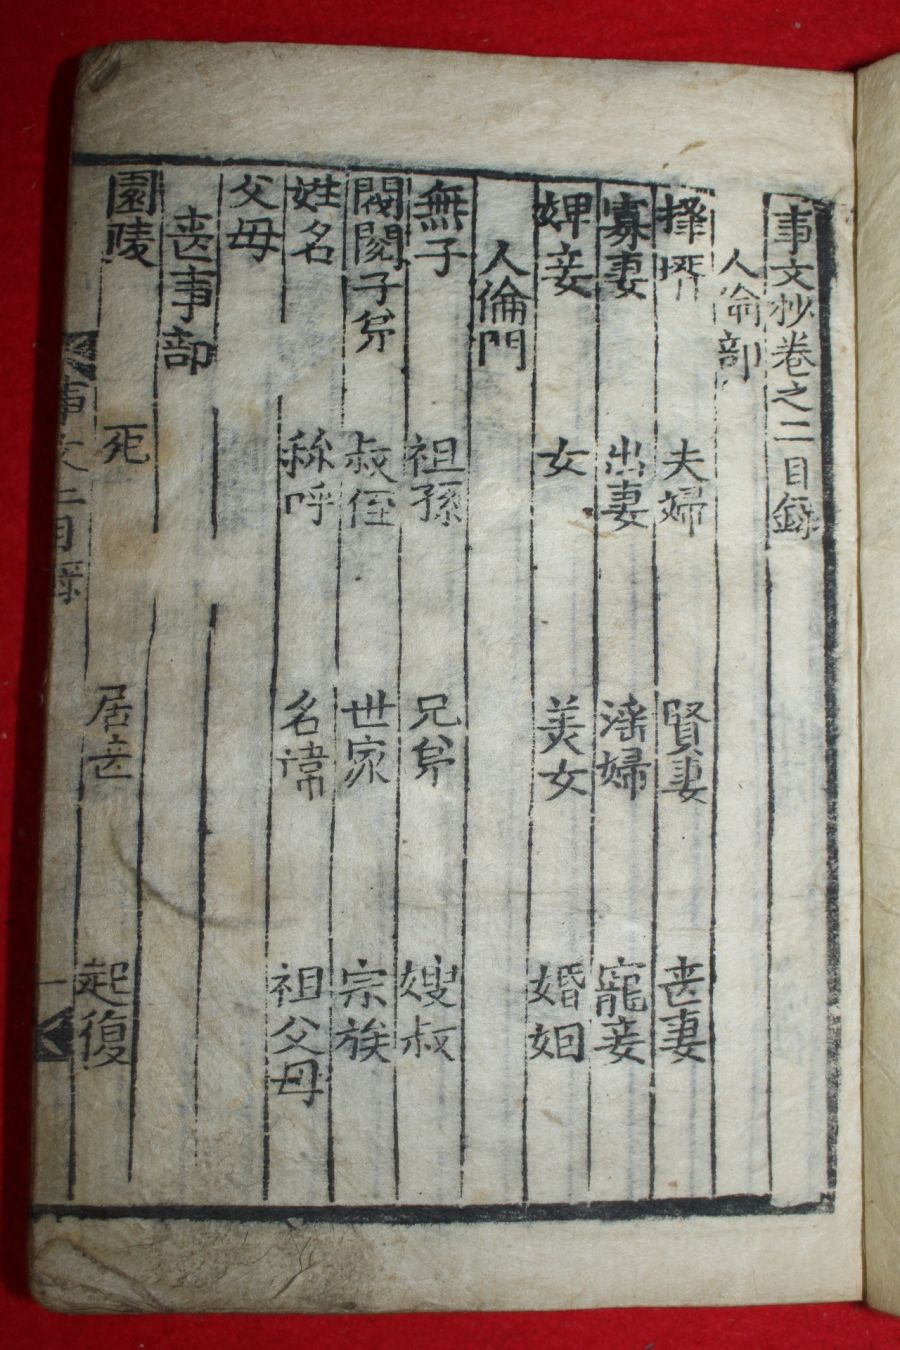 事文抄卷之二目錄
人倫部
擇壻 夫婦 賢妻 丧妻
寡妻 出妻 淫婦 寵妾
婢妾 女 美女 婚姻
人倫門
無子 祖孫 兄弟 嫂叔
閥閱子弟 叔侄 世家 宗族
姓名 稱呼 名諱 祖父母
父母
丧事部
園陵 死 居丧 起復
事文二目錄 一